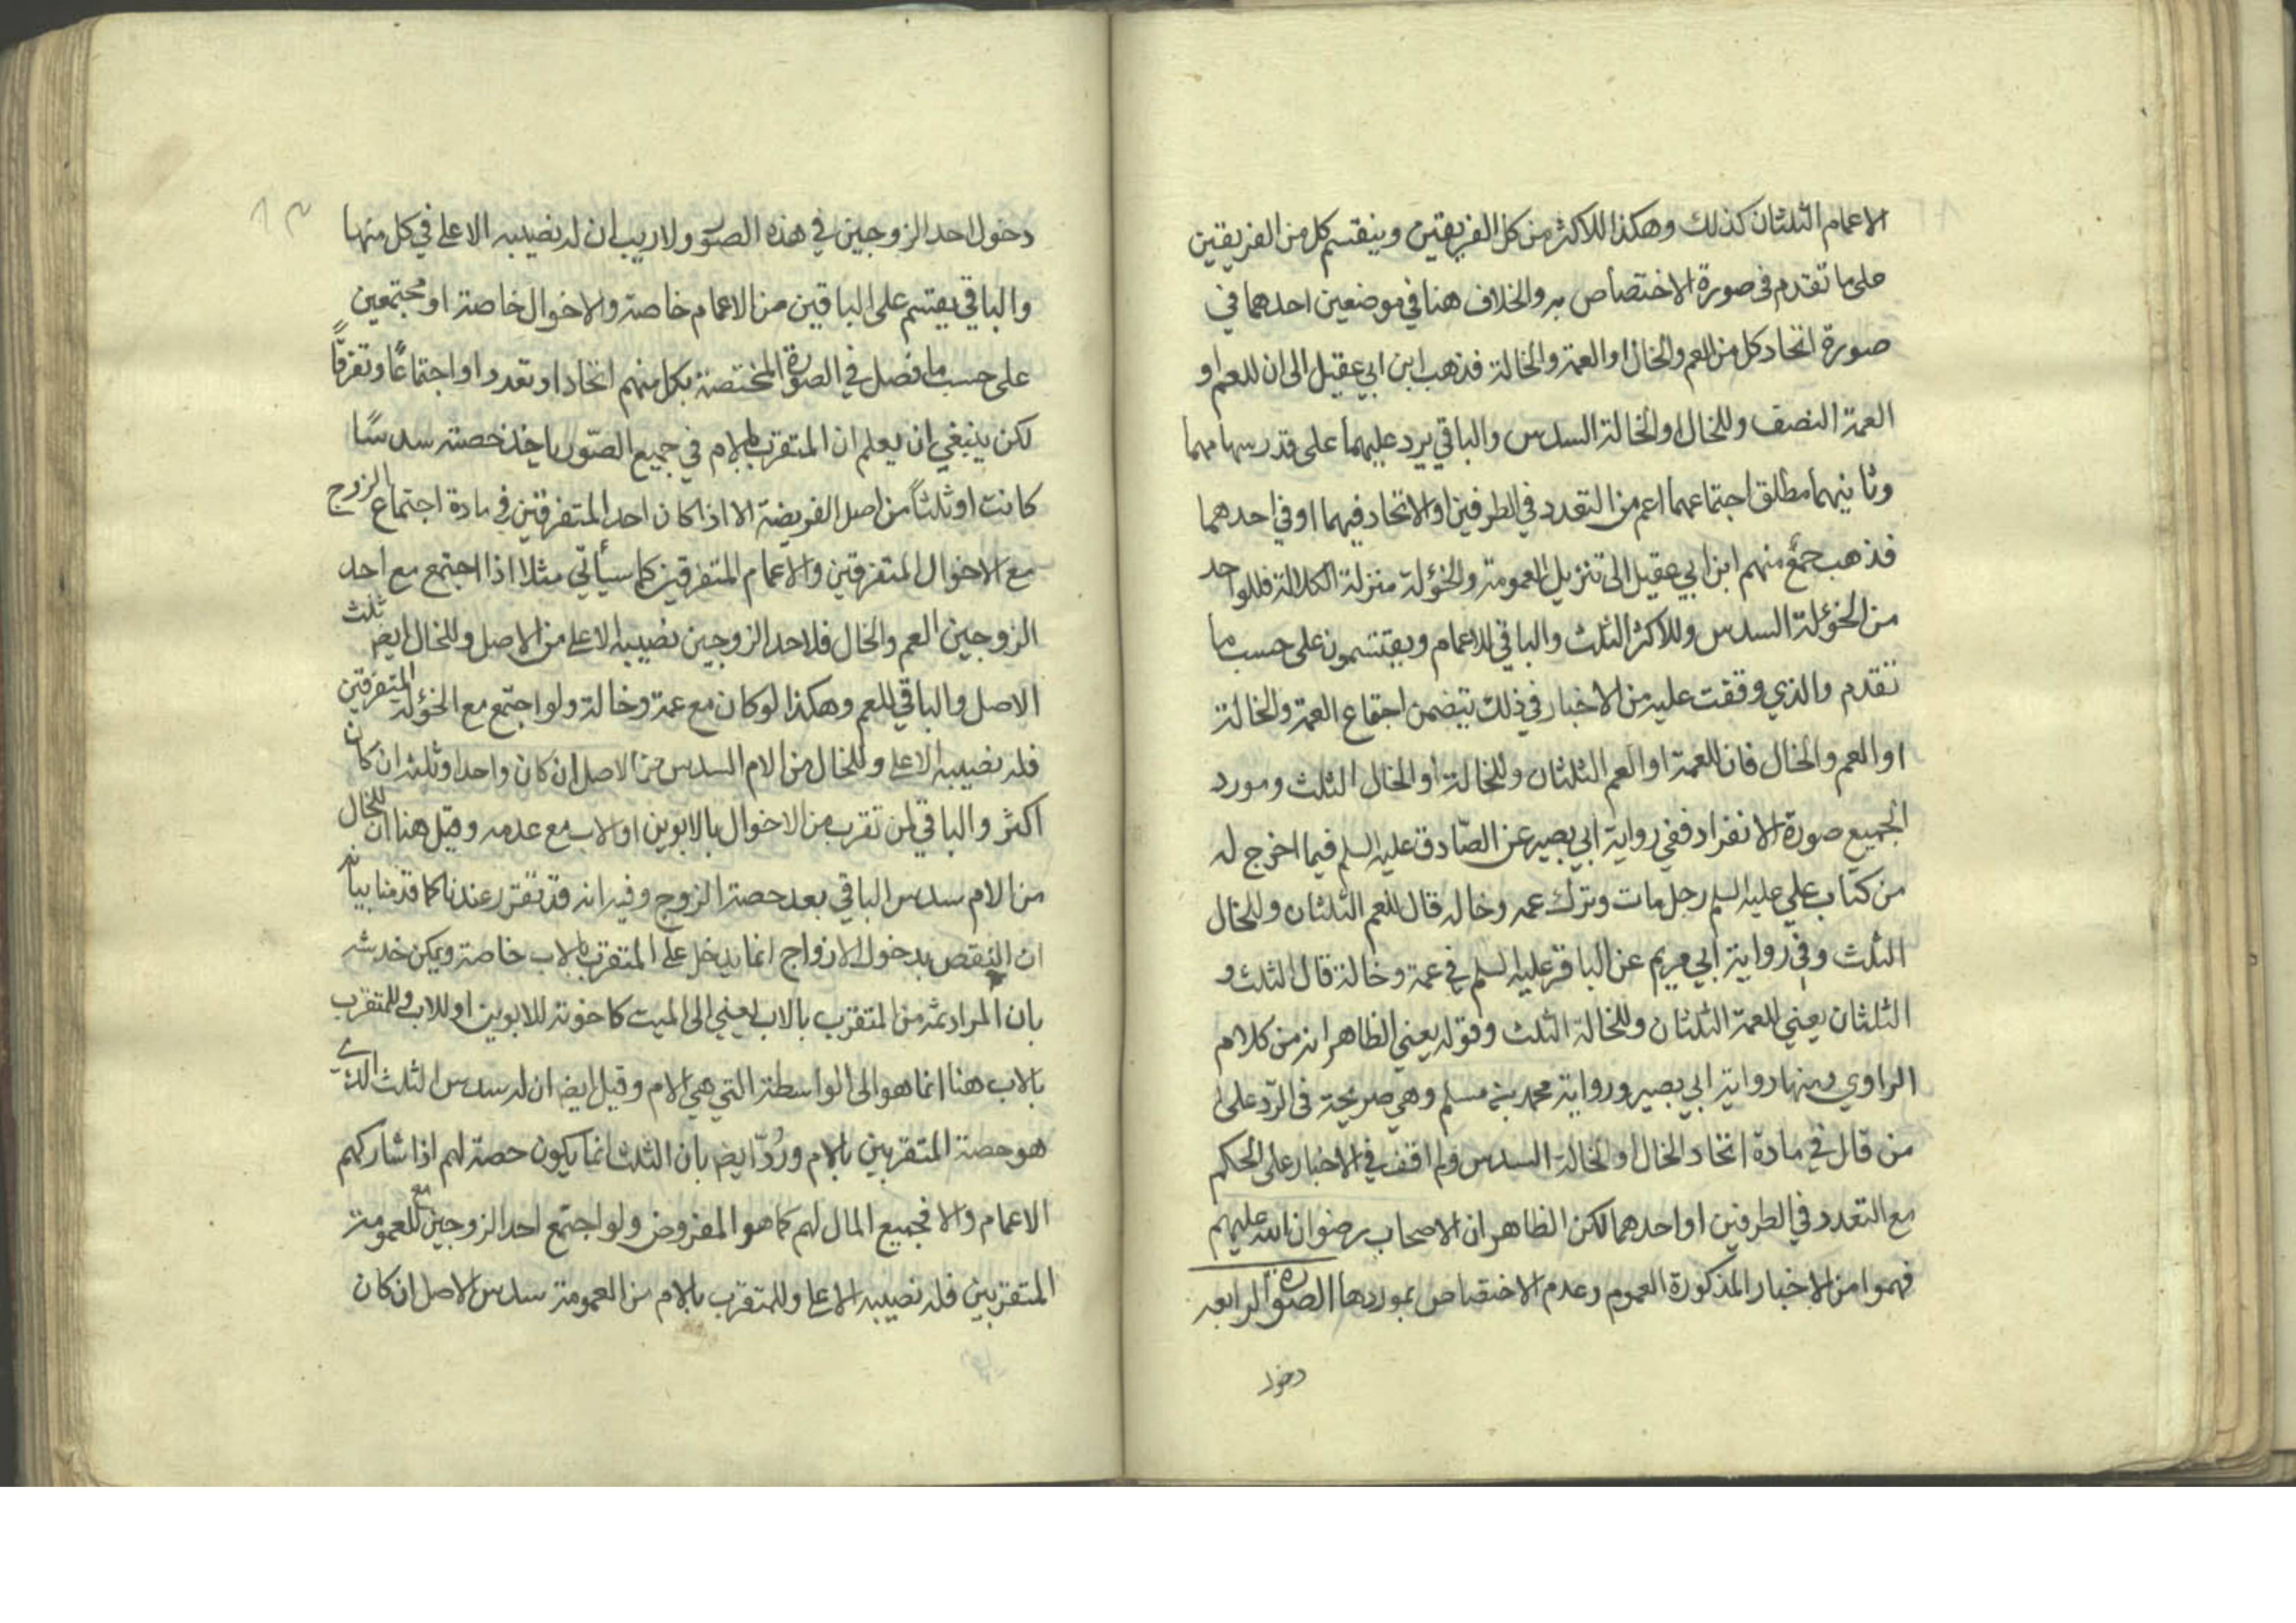 الاعمام الثلثان كذلك وهكذا للاكثر من كل الفريقين وينقسم كل من الفريقين
على ما تقدم فى صورة الاختصاص به والخلاف هنا في موضعين احدهما في
صورة اتحاد كل من العم والخال او العمة والخالة فذهب ابن ابي عقيل الى ان للعم او
العمة النصف وللخال او الخالة السدس والباقي يرد عليهما على قدر سهامهما
وثانيهما مطلق اجتماعهما اعم من التعدد في الطرفين او الاتحاد فيهما او في احدهما
فذهب جمع منهم ابن ابي عقيل الى تنزيل العمومة والخؤلة منزلة الكلالة فللواحد
من الخؤلة السدس وللاكثر الثلث والباقي للاعمام ويقتسمون على حسب ما
تقدم والذي وقفت عليه من الاخبار في ذلك يتضمن اجتماع العمة والخالة
او العم والخال فان للعمة او العم الثلثان وللخالة او الخال الثلث ومورد
الجميع صورة الانفراد ففي رواية ابي بصير عن الصّادق عليه السلم فيما اخرج له
من كتاب علي عليه السلم رجل مات وترك عمه وخاله قال للعم الثلثان وللخال
الثلث وفي رواية ابي مريم عن الباقر عليه السلم في عمة وخالة قال الثلث و
الثلثان يعني للعمة الثلثان وللخالة الثلث وقوله يعني الظاهر انه من كلام
الراوي ومنها رواية ابي بصير ورواية محمد بن مسلم وهي صريحة فى الرّد على
من قال في مادة اتحاد الخال او الخالة السدس ولم اقف في الاخبار على الحكم
مع التعدد في الطرفين او احدهما لكن الظاهر ان الاصحاب رضوان الله عليهم
فهموا من الاخبار المذكورة العموم وعدم الاختصاص بموردها الصورة الرابعه
دخول
دخول احد الزوجين في هذه الصور ولا ريب ان له نصيبه الاعلى في كل منها
والباقي يقتسم على الباقين من الاعمام خاصة والاخوال خاصة او مجتمعين
على حسب ما فصل في الصورة المختصة بكل منهم اتحادا وتعددا واجتماعًا وتفرقًا
لكن ينبغي ان يعلم ان المتقرب بالام في جميع الصّور ياخذ حصته سدسًا
كانت او ثلثاً من اصل الفريضة الا اذا كان احد المتفرقين في مادة اجتماع الزوج
مع الاخوال المتفرقين والاعمام المتفرقين كما سيأتي مثلا اذا اجتمع مع احد
الزوجين العم والخال فلاحد الزوجين نصيبه الاعلى من الاصل وللخال ايض ثلث
الاصل والباقي للعم وهكذا لو كان مع عمة وخالة ولو اجتمع مع الخؤلة المتفرقين
فله نصيبه الاعلى وللخال من الام السدس من الاصل ان كان واحدا وثلثه ان كان
اكثر والباقي لمن تقرب من الاخوال بالابوين او الاب مع عدمه وقيل هنا ان للخال
من الام سدس الباقي بعد حصة الزوج وفيه انه قد تقرر عندنا كما قدمنا بيانه
ان النقص بدخول الازواج انما يدخل على المتقرب بالاب خاصة ويمكن خدشه
بان المراد ثمه من المتقرب بالاب يعني الى الميت كاخوته للابوين او للاب والمتقرب
بالاب هنا انما هو الى الواسطة التي هي الام وقيل ايض ان له سدس الثلث الذي
هو حصة المتقربين بالام ورُدّ ايض بان الثلث انما يكون حصة لهم اذا شاركهم
الاعمام والا فجميع المال لهم كما هو المفروض ولو اجتمع احد الزوجين مع العمومة
المتفرقين فله نصيبه الاعلى وللمتقرب بالام من العمومة سدس الاصل ان كان